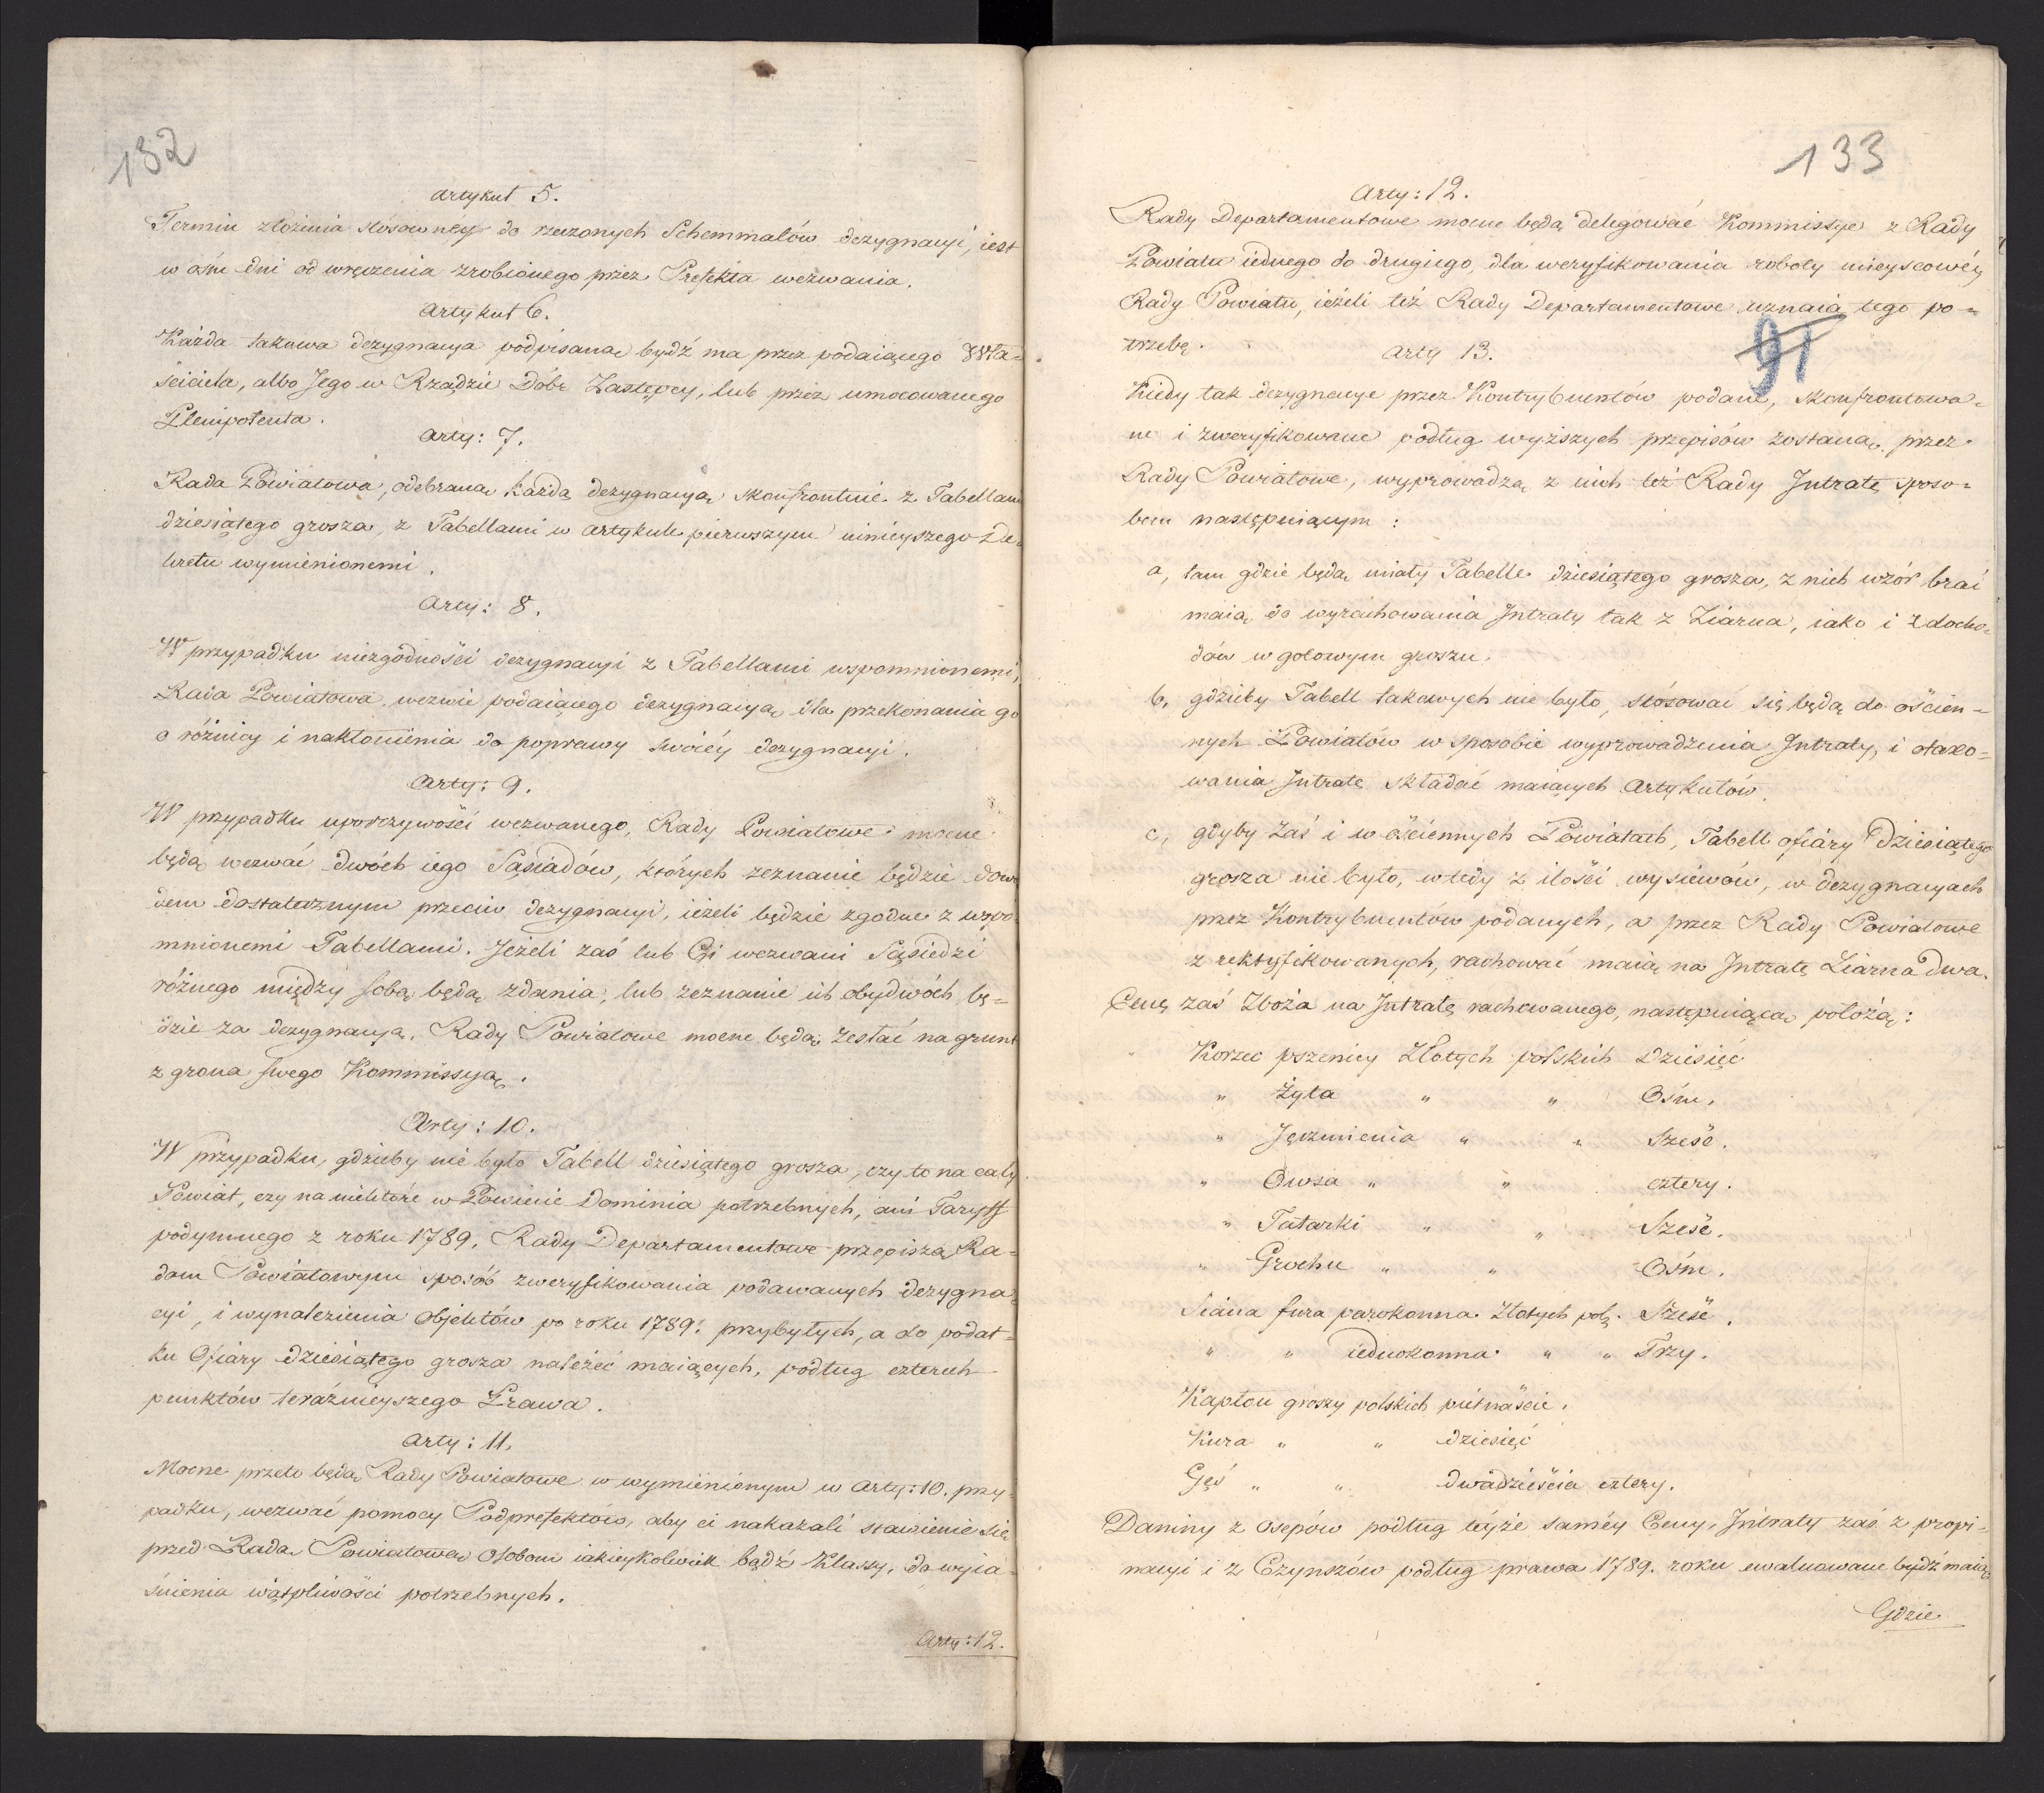 132
Artykuł 5.
Termin złożenia stósownéy do rzeczonych Schemmatów dezygnacyi, iest
w ośm dni od wręczenia zrobionego przez Prefekta wezwania.
Artykuł 6.
Każda takowa dezygnacya podpisana bydź ma przez podaiącego Wła=
ściciela, albo Jego w Rządzie Dóbr Zastępcy, lub przez umocowanego
Plenipotenta.
Arty: 7.
Rada Powiatowa, odebraną każdą dezygnacyą skonfrontuie z Tabellami
dziesiątego grosza, z Tabellami w artykule pierwszym ninieyszego De=
kretu wymienionemi.
Arty: 8.
W przypadku niezgodności dezygnacyi z Tabellami wspomnionemi,
Rada Powiatowa wezwie podaiącego dezygnacyą dla przekonania go
o różnicy i nakłonienia do poprawy swoiéy dezygnacyi.
Arty: 9.
W przypadku uporczywości wezwanego, Rady Powiatowe mocne
będą wezwać dwóch iego Sąsiadów, których zeznanie będzie dowo
dem dostatecznym przeciw dezygnacyi, ieżeli będzie zgodne z wspo
mnionemi Tabellami. Jeżeli zaś lub Ci wezwani Sąsiedzi
różnego między sobą będą zdania, lub zeznanie ich obydwóch bę=
dzie za dezygnacyą, Rady Powiatowe mocne będą zesłać na grunt
z grona swego Kommissyą.
Arty: 10.
W przypadku, gdzieby nie było Tabell dziesiątego grosza, czy to na cały
Powiat, czy na niektóre w Powiecie Dominia potrzebnych, ani Taryff
podymnego z roku 1789, Rady Departamentowe przepiszą Ra=
dom Powiatowym sposób zweryfikowania podawanych dezygna
cyi, i wynalezienia objektów po roku 1789. przybyłych, a do podat=
ku Ofiary dziesiątego grosza należeć maiących, podług czterech
punktów teraźnieyszego Prawa.
Arty: 11.
Mocne przeto będą Rady Powiatowe w wymienionym w Arty: 10. przy=
padku, wezwać pomocy Podprefektów, aby ci nakazali stawienie się
przed Radą Powiatową Osobom iakieykolwiek bądź Klassy, do wyia=
śnienia wątpliwości potrzebnych.
Arty: 12.
133
Arty: 12.
Rady Departamentowe mocne będą delegować Kommissye z Rady
Powiatu iednego do drugiego, dla weryfikowania roboty mieyscowéy
Rady Powiatu, ieżeli też Rady Departamentowe uznaią tego po=
trzebę.
91
Arty 13.
Kiedy tak dezygnacye przez Kontrybuentów podane, skonfrontowa=
ne i zweryfikowane podług wyższych przepisów zostaną przez
Rady Powiatowe, wyprowadzą z nich też Rady Intratę sposo=
bem następuiącym:
a, tam gdzie będą miały Tabelle dziesiątego grosza, z nich wzór brać
maią do wyrachowania Intraty tak z Ziarna, iako i z docho=
dów w gotowym groszu.
b, gdzieby Tabell takowych nie było, stósować się będą do ościen=
nych Powiatów w sposobie wyprowadzenia Intraty, i otaxo=
wania Intratę składać maiących Artykułów.
c, gdyby zaś i w ościennych Powiatach, Tabell ofiary Dziesiątego
grosza nie było, wtedy z ilości wysiewów, w dezygnacyach
przez Kontrybuentów podanych, a przez Rady Powiatowe
zrektyfikowanych, rachować maią na Intratę Ziarna dwa.
Cenę zaś Zboża na Intratę rachowanego, następuiącą położą:
Korzec pszenicy Złotych polskich Dziesięć
" Żyta " " Ośm.
" Jęczmienia " " Sześć.
" Owsa " " cztery.
" Tatarki " " Sześć.
" Grochu " " Ośm.
Siana fura parokonna Złotych pols. Sześć.
" " iednokonna " " Trzy.
Kapłon groszy polskich piętnaście.
Kura " " dziesięć
Gęś " " dwadzieścia cztery.
Daniny z Osepów podług téyże saméy Ceny, Intraty zaś z propi=
nacyi i z Czynszów podług prawa 1789. roku ewaluowane bydź maią
Gdzie